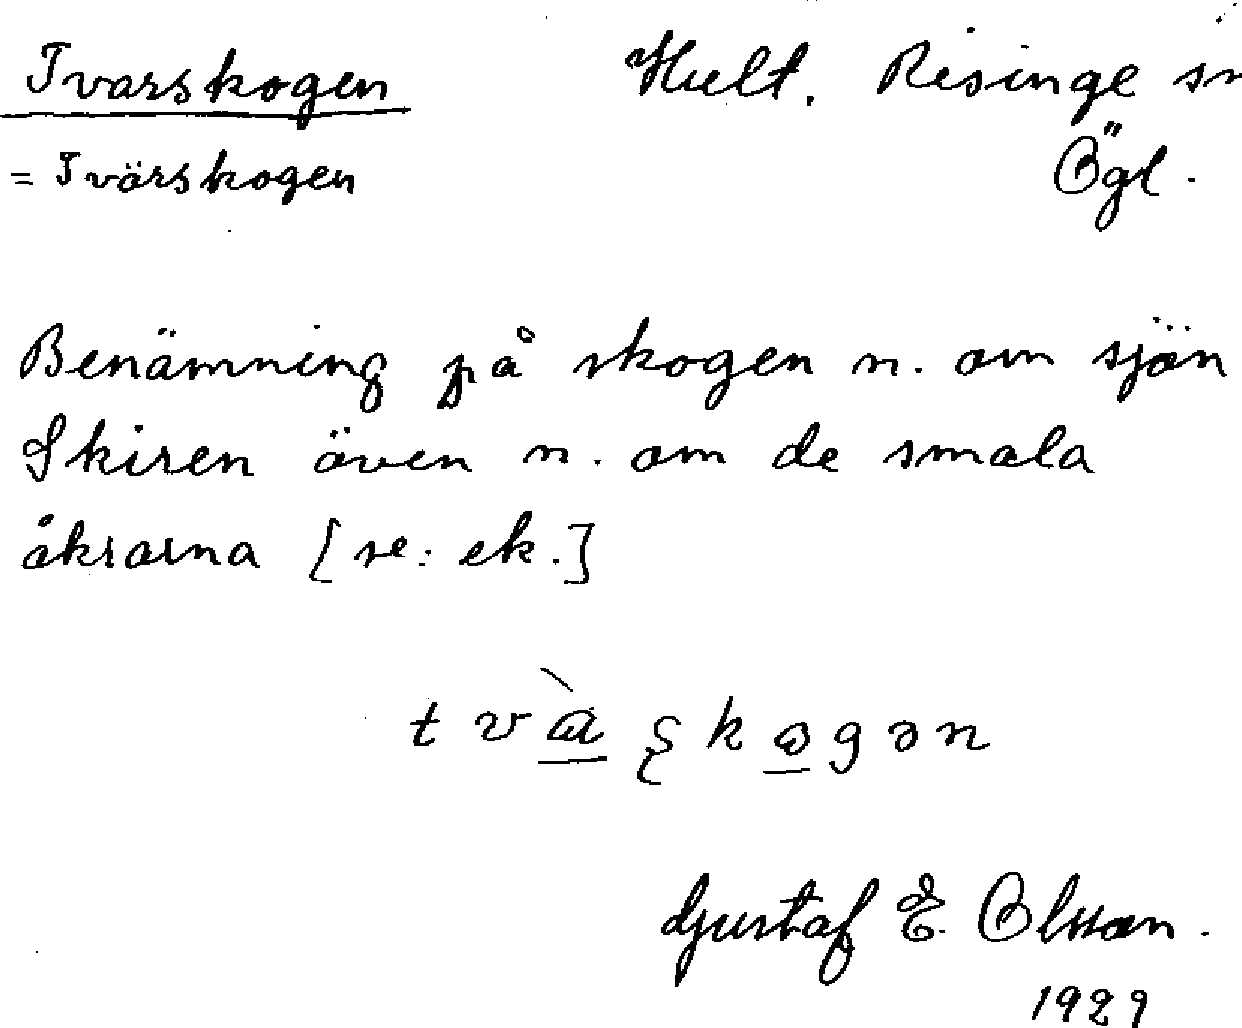 Tvarskogen Hult. Risinge sn
= Tvärskogen Ögl.
Benämning på skogen n. om sjön
Skiren även n. om de smala
åkrarna [se: ek.]
Gustaf E. Olsson.
1929